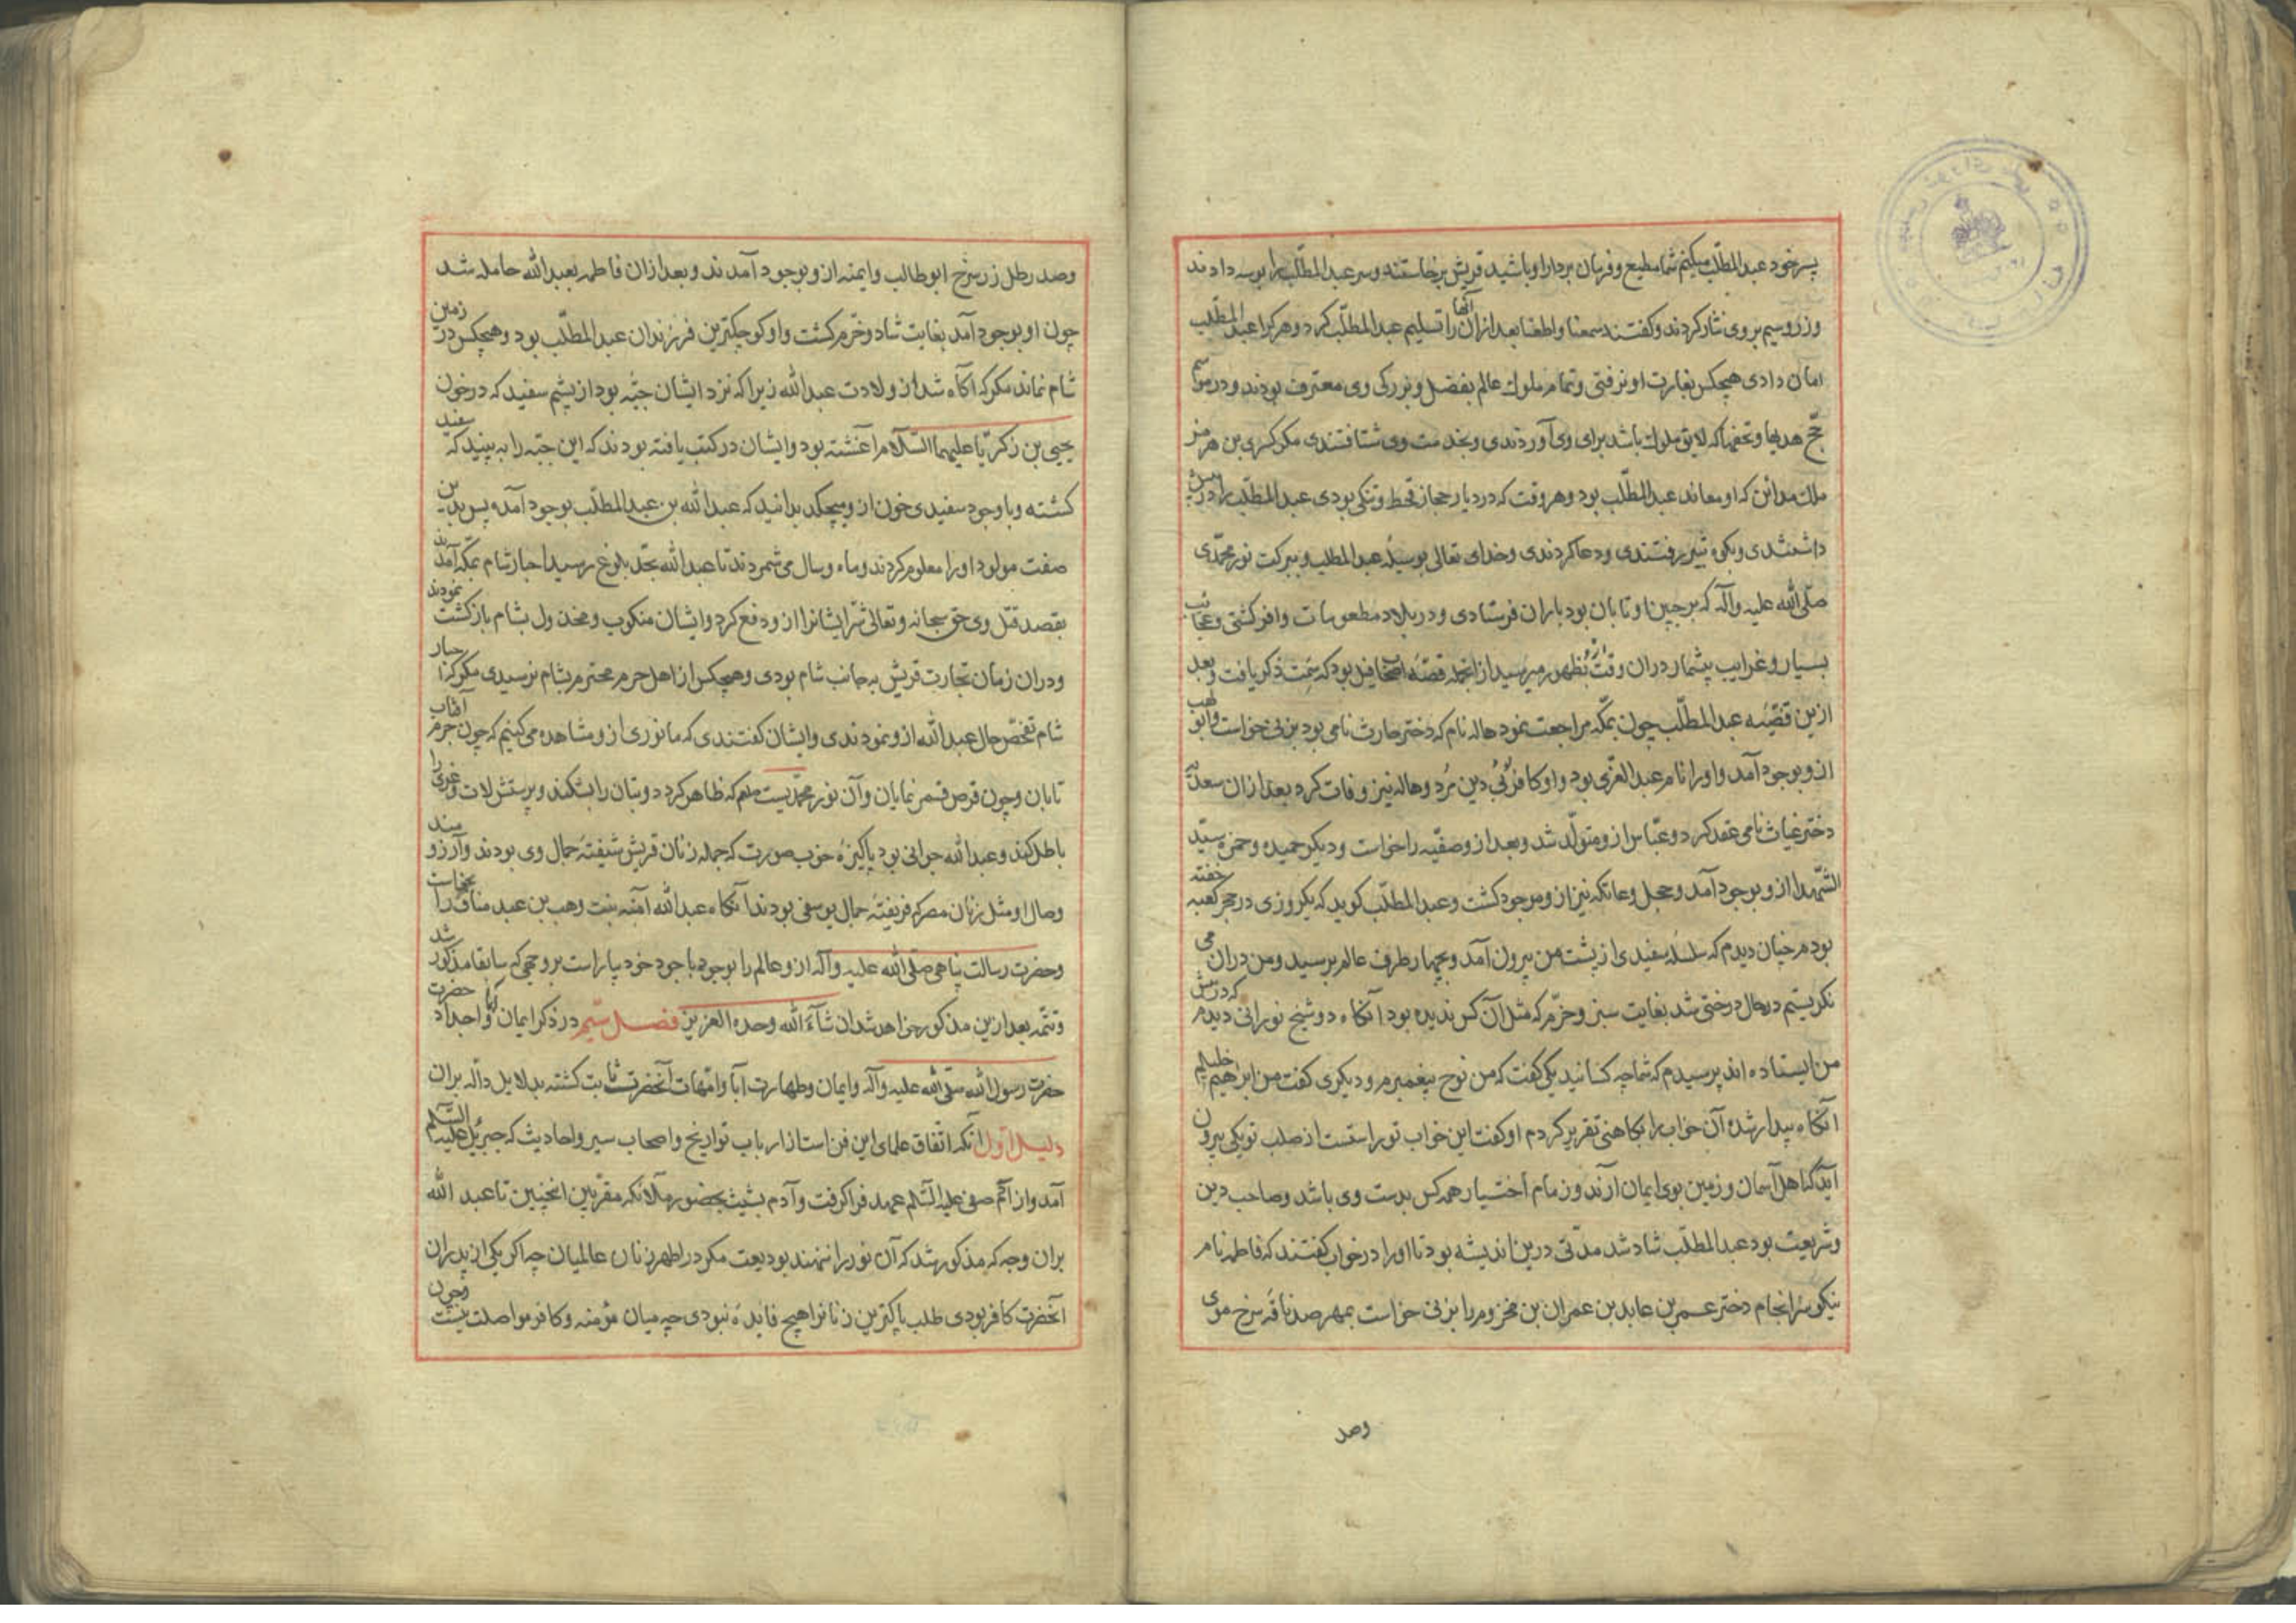 پسر خود عبدالمطلّب میکنم شما مطیع و فرمان بردار او باشید قریش برخاستند و سر عبدالمطلّب را بوسه دادند
و زر و سیم بر وی نثار کردند و گفتند سمعنا و اطعنا بعد ازان آنها را تسلیم عبدالمطلّب کرد و هر کرا عبدالمطلّب
امان دادی هیچکس بغارت او نرفتی و تمام ملوک عالم بفضل و بزرکی وی معترف بودند و در موسم
حجّ هدیها و تحفها که لایق ملوک باشد برای وی آوردندی و بخدمت وی شتافتندی مکر کسری بن هرمز
ملک مداین که او معاند عبدالمطلّب بود و هر وقت که در دیار حجاز قحط و تنکی بودی عبدالمطلّب را در پیش
داشتندی و بکوه ثبیر رفتندی و دعا کردندی و خدای تعالی بوسیلهٔ عبدالمطلب و ببرکت نور محمّدی
صلّی الله علیه وآله که بر جبین او تابان بود باران فرستادی و در بلاد مطعومات وافر کشتی و عجایب
بسیار و غرایب بیشمار دران وقت بظهور میرسید ازانجمله قصّهٔ اصحاب فیل بود که سمت ذکر یافت و بعد
ازین قضیّه عبدالمطلّب چون بمکّه مراجعت نمود هاله نام که دختر حارث نامی بود بزنی خواست و ابولهب
ازو بوجود آمد و او را نام عبدالعزّی بود و او کافر بی دین مرد و هاله نیز وفات کرد بعد ازان سعدی
دختر غیاث نامی عقد کرد و عبّاس ازو متولّد شد و بعد ازو صفّیه را خواست و دیکر حمیده و حمزه سیّد
الشّهدا ازو بوجود آمد و حجل و عاتکه نیز ازو موجود کشت و عبدالمطلّب کوید که یکروزی در حجر کعبه خفته
بودم چنان دیدم که سلسله سفیدی از پشت من بیرون آمد و بچهار طرف عالم برسید و من دران می
نکریستم در حال درختی شد بغایت سبز و خرّم که مثل آن کس ندیده بود آنکاه دو شیخ نورانی دیدم که در پیش
من ایستاده اند پرسیدم که شما چه کسانید یکی کفت که من نوح پیغمبرم و دیکری کفت من ابراهیم خلیلم
آنکاه بیدار شده آن خواب را بکاهنی تقریر کردم او کفت این خواب تو راستست از صلب تو یکی بیرون
آید که اهل آسمان و زمین بوی ایمان آرند و زمام اختیار همه کس بدست وی باشد و صاحب دین
و شریعت بود عبدالمطلّب شاد شد مدّتی درین اندیشه بود تا او را در خواب کفتند که فاطمه نام
نیکو سرانجام دختر عمرو بن عابد بن عمران بن مخزوم را بزنی خواست بمهر صد ناقهٔ سرخ موی
وصد
وصد رطل زر سرخ ابوطالب و ایمنه ازو بوجود آمدند و بعد ازان فاطمه بعبدالله حامله شد
چون او بوجود آمد بغایت شاد و خرّم کشت و او کوچکترین فرزندان عبدالمطلّب بود و هیچکس در زمین
شام نماند مکر که آکاه شد از ولادت عبدالله زیرا که نزد ایشان جبّه بود از پشم سفید که در خون
یحیی بن زکریّا علیهما السّلام آغشته بود و ایشان در کتب یافته بودند که این جبّه را به بینید که سفید
کشته و با وجود سفیدی خون ازو میچکد بدانید که عبدالله بن عبدالمطلّب بوجود آمده پس بدین
صفت مولود او را معلوم کردند و ماه و سال می شمردند تا عبدالله بحدّ بلوغ رسید احبار شام بمکّه آمدند
بقصد قتل وی حق سبحانه و تعالی شرّ ایشانرا ازو دفع کرد و ایشان منکوب و مخذول بشام بازکشت نمودند
و دران زمان تجارت قریش بجانب شام بودی و هیچکس از اهل حرم محترم بشام نرسیدی مکر که احبار
شام تفحّص حال عبدالله ازو نمودندی و ایشان کفتندی که ما نوری ازو مشاهده می کنیم که چون جرم آفتاب
تابان و چون قرص قمر نمایان و آن نور محمّدیست صلعم که ظاهر کردد و بتان را بشکند و پرستش لات و عزّی را
باطل کند و عبدالله جوانی بود پاکیزهٔ خوب صورت که جمله زنان قریش شیفتهٔ جمال وی بودند و آرزومند
وصال او مثل زنان مصر که فریفتهٔ جمال یوسفی بودند آنکاه عبدالله آمنه بنت وهب بن عبد مناف را بخواست
و حضرت رسالت پناهی صلّی الله علیه وآله ازو عالم را بوجود با جود خود بیاراست بر وجهی که سابقا مذکور شد
و تتمّه بعد ازین مذکور خواهد شد ان شآء الله وحده العزیز فصل سیّم در ذکر ایمان آبا و اجداد حضرت
حضرت رسول الله صلّی الله علیه وآله و ایمان و طهارت آبا و امّهات آنحضرت ثابت کشته بدلایل دالّه بران
دلیل اوّل آنکه اتّفاق علمای این فن است از ارباب تواریخ و اصحاب سیر و احادیث که جبرئیل علیه السّلم
آمد و از آدم صفی علیه السّلم عهد فرا کرفت و آدم بشیث بحضور ملائکه مقرّبین همچنین تا عبدالله
بران وجه که مذکور شد که آن نور را ننهند بودیعت مکر در اطهر زنان عالمیان چه اکر یکی از پدران
آنحضرت کافر بودی طلب پاکترین زنانرا هیچ فایدهٔ نبودی چه میان مؤمنه و کافر مواصلت نیست و چون